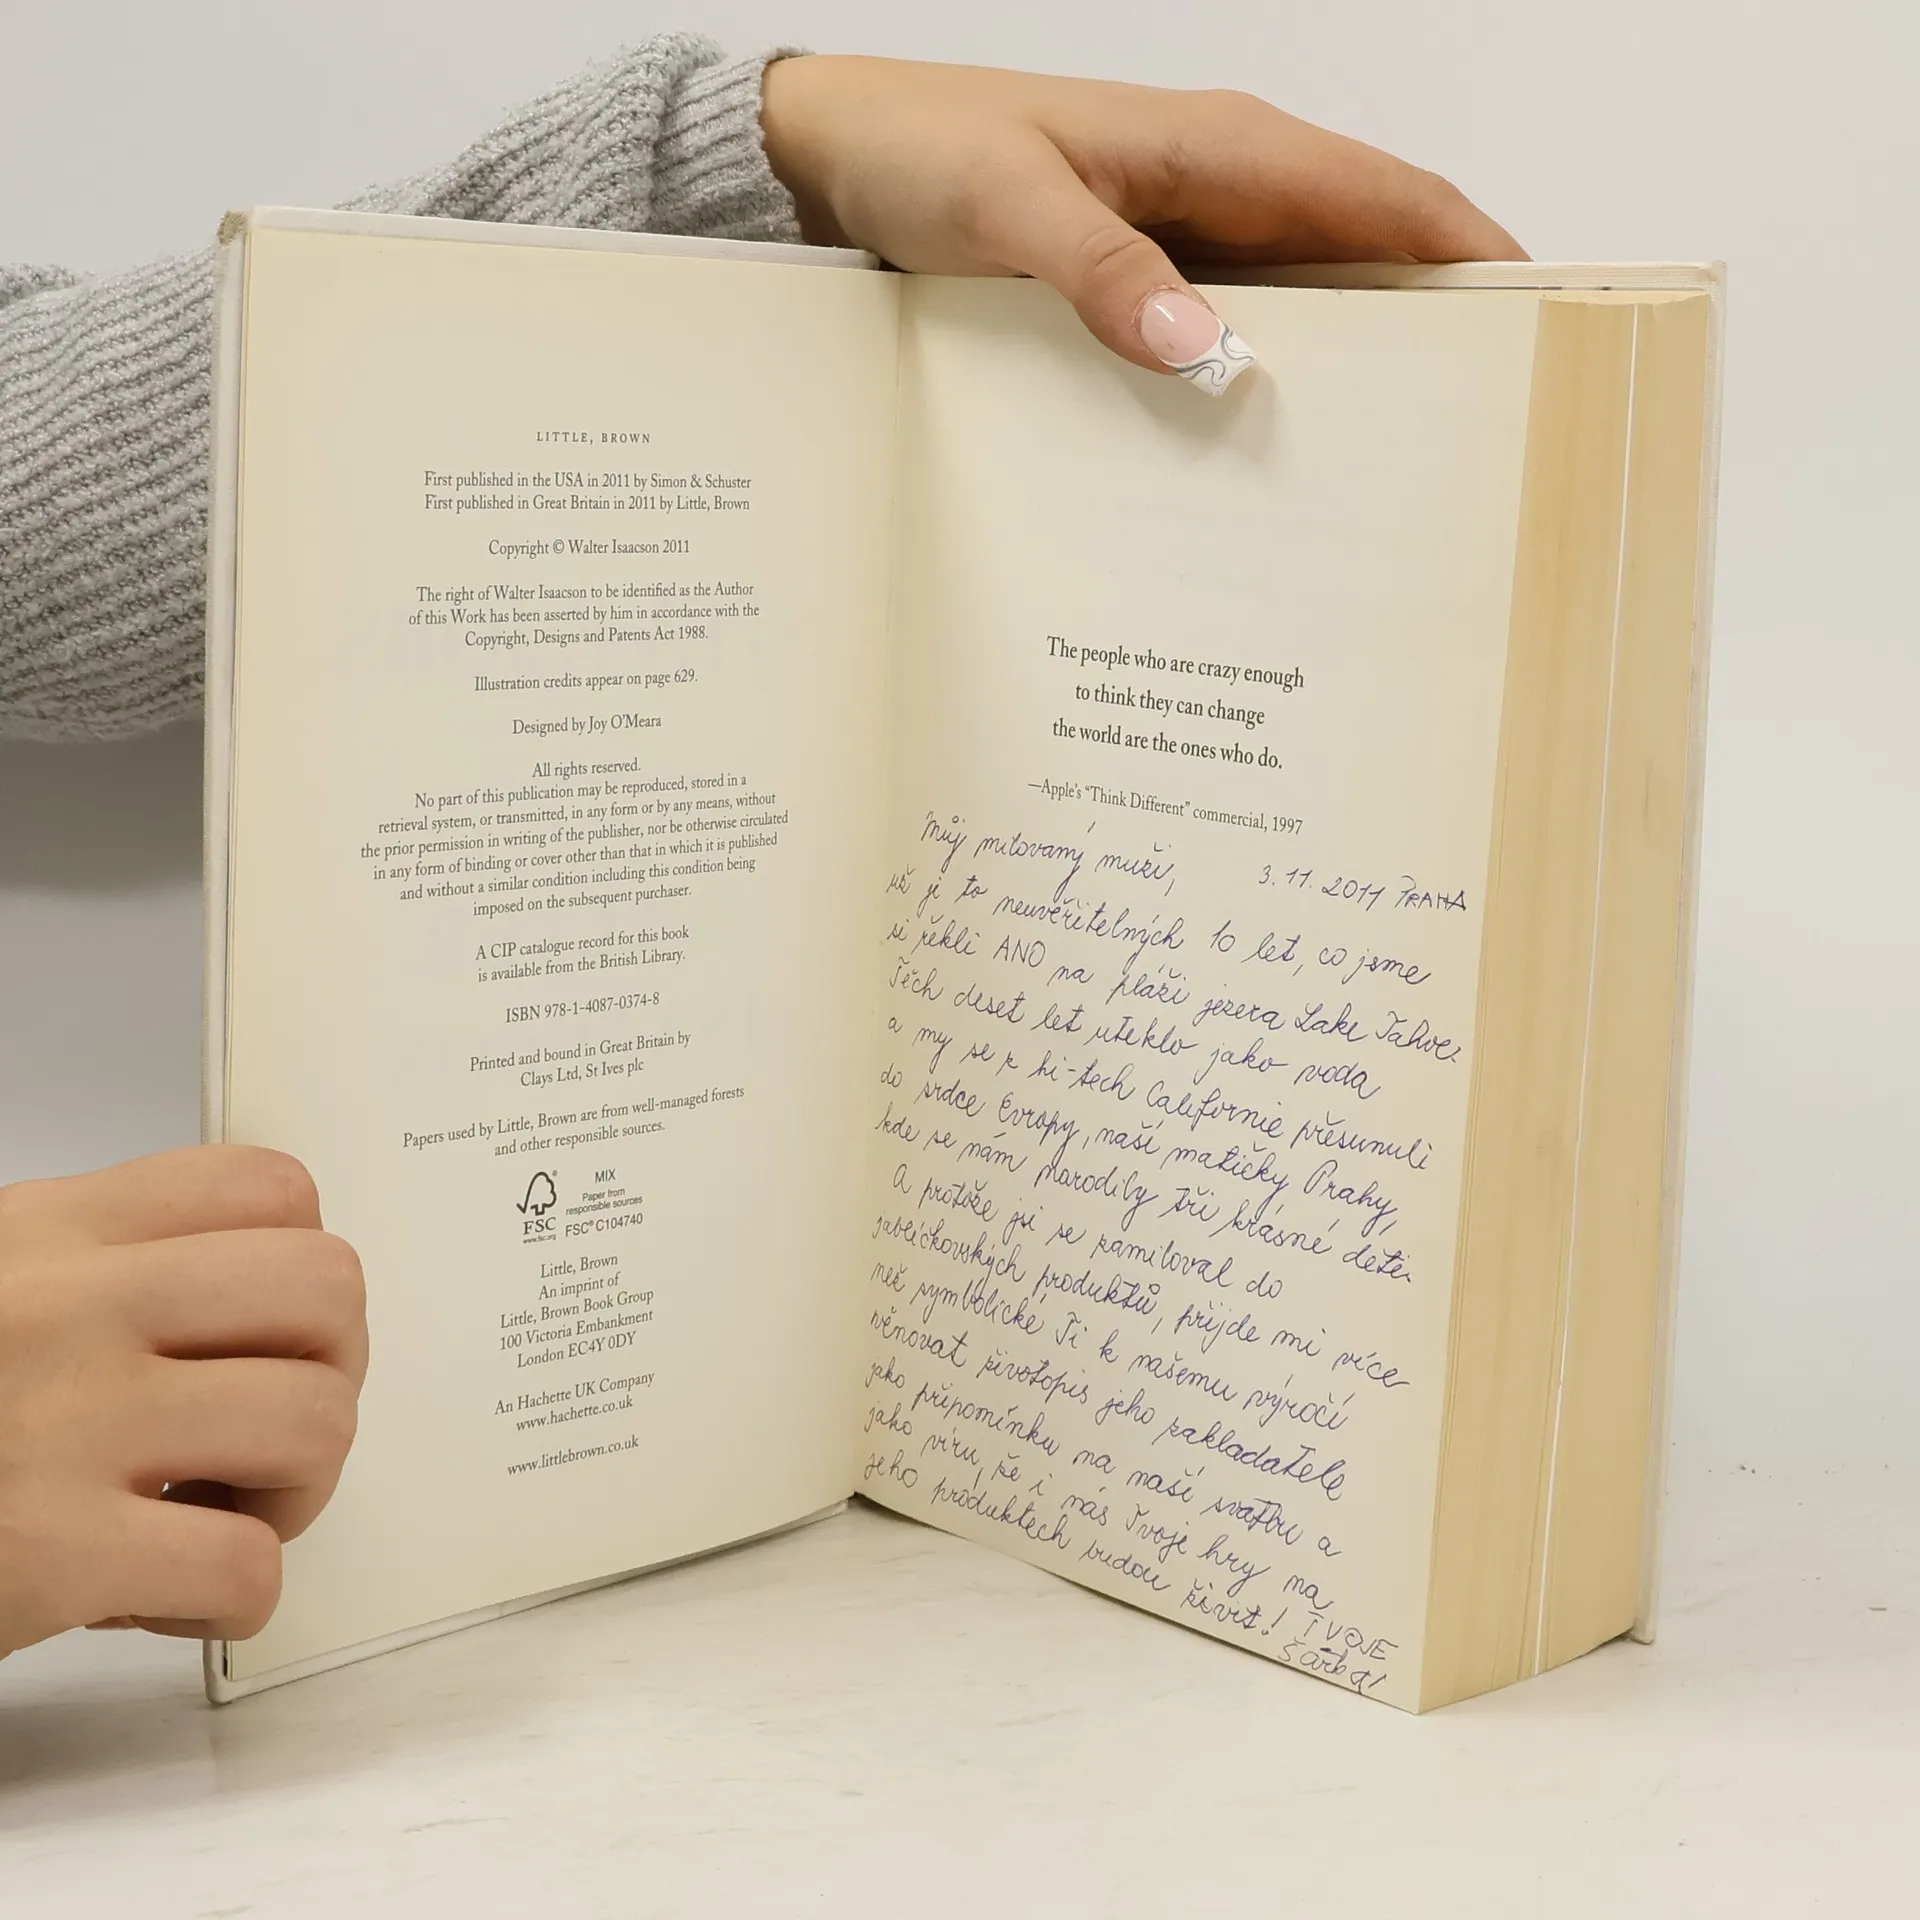 LITTLE, BROWN
First published in the USA in 2011 by Simon & Schuster
First published in Great Britain in 2011 by Little, Brown
Copyright © Walter Isaacson 2011
The right of Walter Isaacson to be identified as the Author
of this Work has been asserted by him in accordance with the
Copyright, Designs and Patents Act 1988.
Illustration credits appear on page 629.
Designed by Joy O'Meara
All rights reserved.
No part of this publication may be reproduced, stored in a
retrieval system, or transmitted, in any form or by any means, without
the prior permission in writing of the publisher, nor be otherwise circulated
in any form of binding or cover other than that in which it is published
and without a similar condition including this condition being
imposed on the subsequent purchaser.
A CIP catalogue record for this book
is available from the British Library.
ISBN 978-1-4087-0374-8
Printed and bound in Great Britain by
Clays Ltd, St Ives plc
Papers used by Little, Brown are from well-managed forests
and other responsible sources.
FSC
www.fsc.org
MIX
Paper from
responsible sources
FSC® C104740
Little, Brown
An imprint of
Little, Brown Book Group
100 Victoria Embankment
London EC4Y 0DY
An Hachette UK Company
www.hachette.co.uk
www.littlebrown.co.uk
The people who are crazy enough
to think they can change
the world are the ones who do.
—Apple's "Think Different" commercial, 1997
Můj milovaný muži, 3.11.2011 PRAHA
už je to neuvěřitelných 10 let, co jsme
si řekli ANO na pláži jezera Lake Tahoe.
Těch deset let uteklo jako voda
a my se z hi-tech Californie přesunuli
do srdce Evropy, naší matičky Prahy,
kde se nám narodily tři krásné děti.
A protože jsi se zamiloval do
jablíčkovských produktů, přijde mi více
než symbolické Ti k našemu výročí
věnovat životopis jeho zakladatele
jako připomínku na naši svatbu a
jako víru, že i nás Tvoje hry na
jeho produktech budou živit! TVOJE
Šárka!